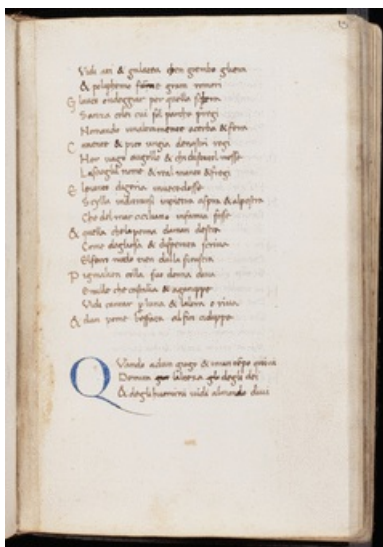 Vidi aci & galatea chen grembo gliera
& poliphemo farne gran romori
Glauco ondeggiar per quella schiera
Sanza colei cui sol par che pregi
Nomando unaltra amante acerba & fera
Carmente & pico un gia de nostri regi
Hor vago augello & chi di stato il mosse
Lasciogli nome & real manto & fregi
El pianto degeria invece dosse
Scylla indurarsi in pietra aspra & alpestra
Che del mar ciciliano infamia fosse
& quella che la penna da man destra
Come dogliosa & disperata scriva
El ferro nudo tien dalla sinestra
Pigmalion colla sua donna viva
E mille che castalia & aganippe
Vidi cantar per luna & laltra riva
& dun pome beffata al fin cidippe
Quando ad un giogo & in un tempo quivi
Domita laltezza degli dei
& degli huomini vidi al mondo divi